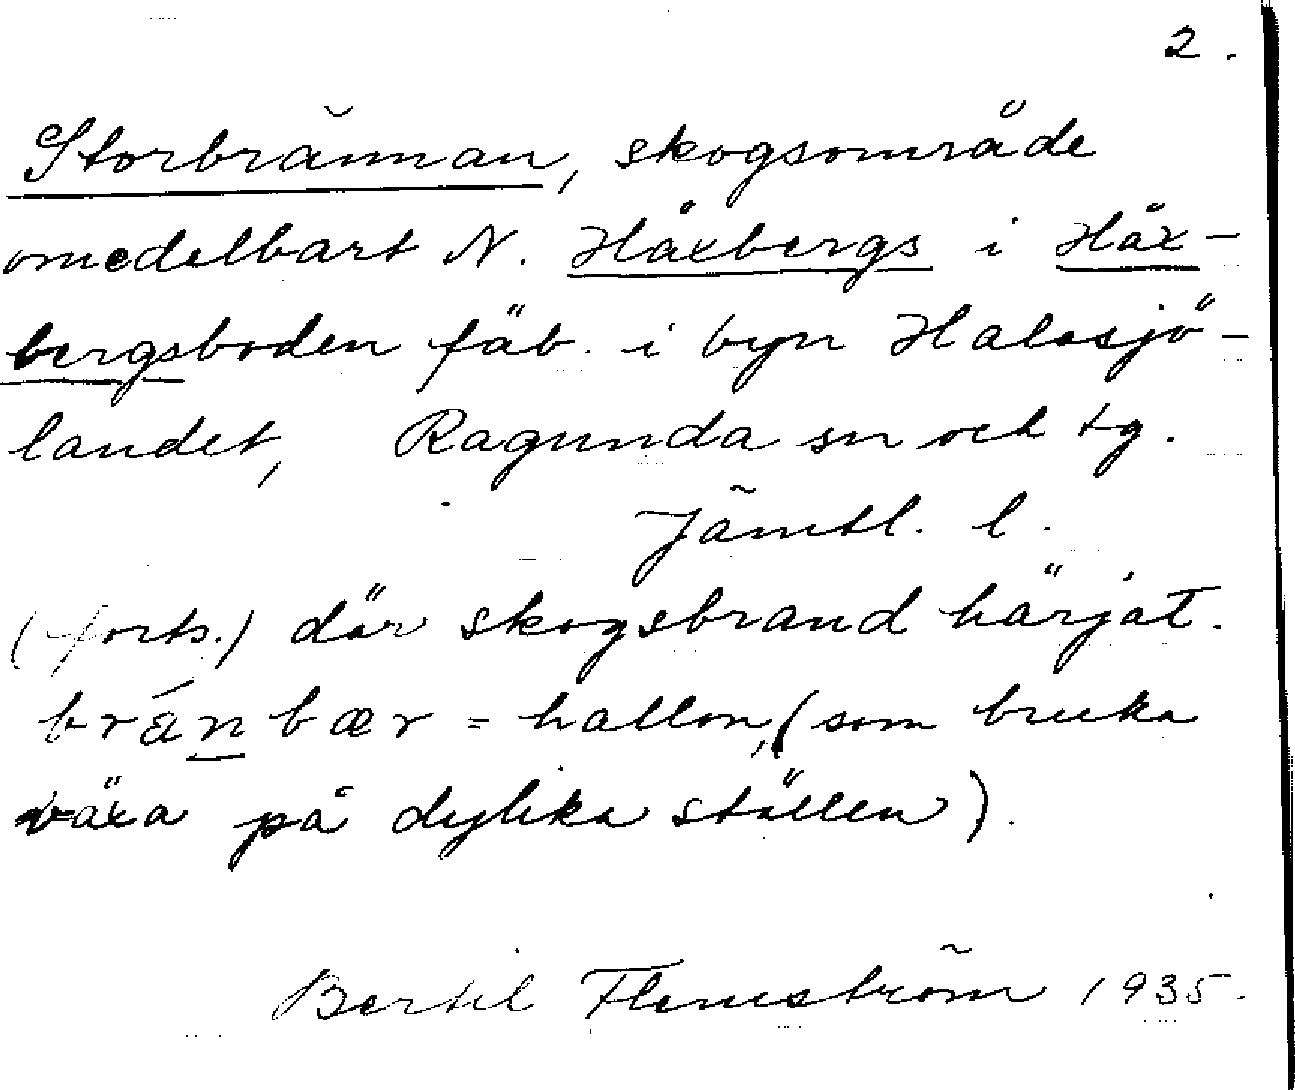 2.
Storbrännan, skogsområde
omedelbart N. Håxbergs i Håx-
bergsboden fäb. i byn Halasjö-
landet, Ragunda sn och tg.
Jämtl. l.
(forts.) där skogsbrand härjat.
bránbær = hallon, (som bruka
växa på dylika ställen).
Bertil Flemström 1935.